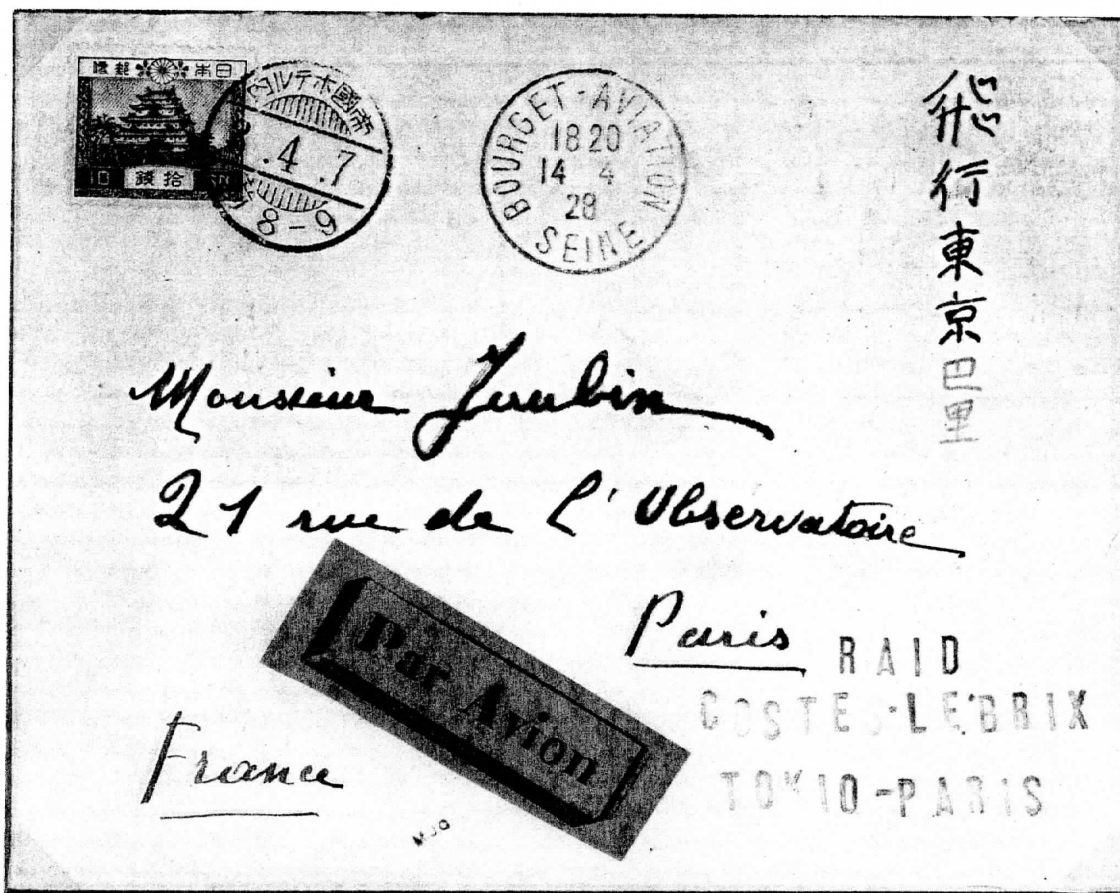 日本郵便
10 拾銭
帝國ホテル内
.4.7
8-9
BOURGET-AVIATION
18 20
14 4
28
SEINE
飛行東京巴里
Monsieur Joubin
21 rue de l'Observatoire
Paris
France
Par Avion
RAID
COSTES-LEBRIX
TOKIO-PARIS
MJG